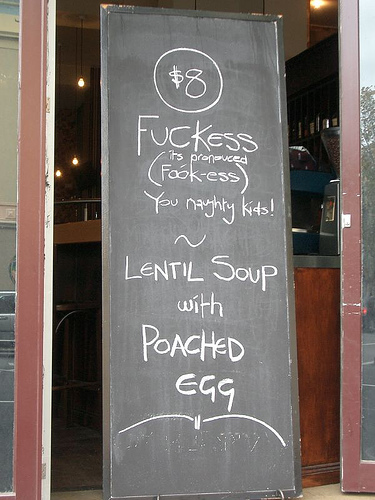 $8
FUCKESS
its pronouced
(Fook-ess)
You naughty kids!
~
LENTIL SOUP
with
POACHED
EGG